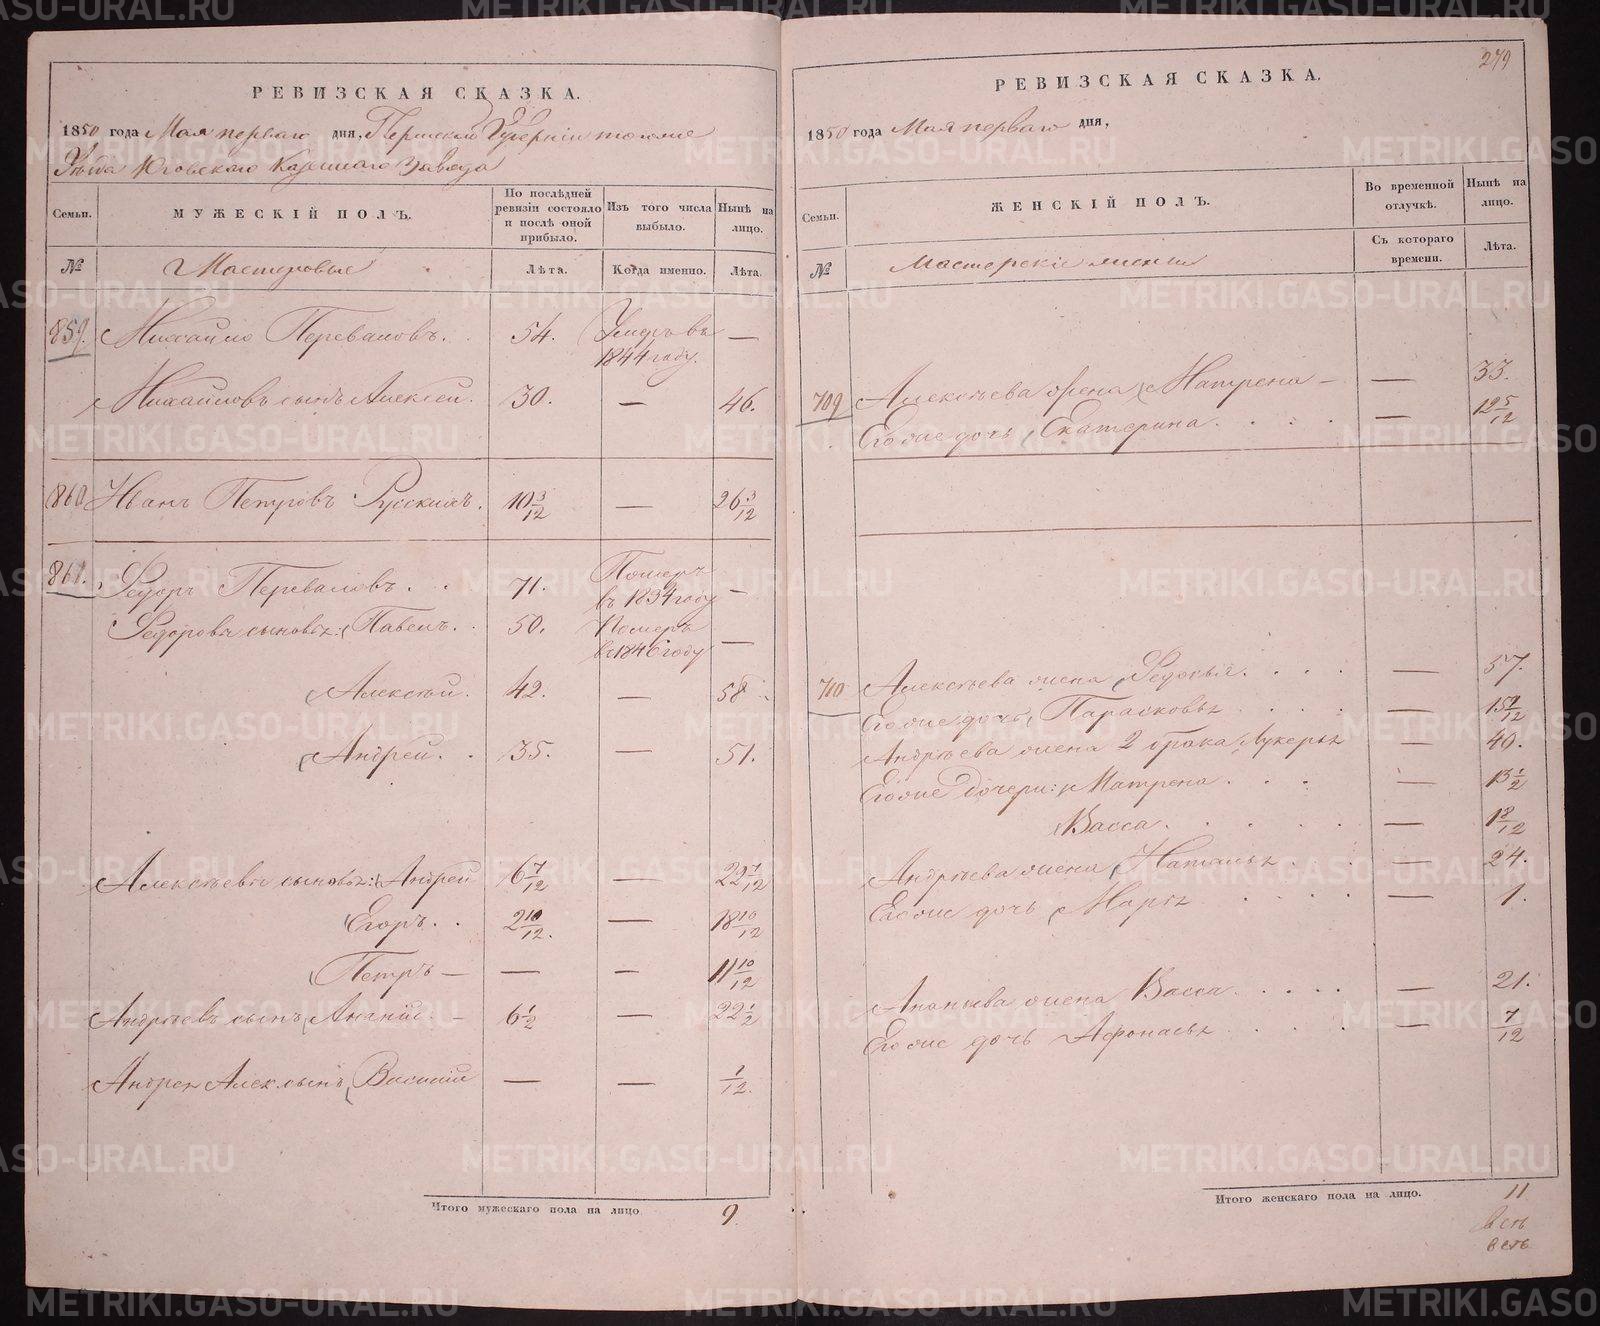 РЕВИЗСКАЯ СКАЗКА.
1850 года Мая перваго дня, Пермской Губерніи тогоже
Уѣзда Юговскаго Казеннаго Завода
Семьи. МУЖЕСКІЙ ПОЛЪ. По послѣдней ревизіи состояло и послѣ оной прибыло. Изъ того числа выбыло. Нынѣ на лицо.
№ Мастеровые Лѣта. Когда именно. Лѣта.
859. Михайло Переваловъ. 54. Умеръ въ 1844 году. —
Михайловъ сынъ Алексѣй. 30. — 46.
860 Иванъ Петровъ Русскихъ. 10 3/12 — 26 3/12
861. Федоръ Переваловъ. 71. Померъ въ 1834 году —
Федоровы сыновья: Павелъ. 50. Померъ въ 1846 году —
Алексѣй. 42. — 58
Андрей. 35. — 51.
Алексѣевы сыновья: Андрей 6 7/12 — 22 7/12
Егоръ. 2 10/12. — 18 10/12
Петръ — — — 11 10/12
Андреевъ сынъ Ананій. 6 1/2 — 22 1/2
Андрея Алек. сынъ Василій — — 1/12.
Итого мужескаго пола на лицо 9
279
РЕВИЗСКАЯ СКАЗКА.
1850 года Мая перваго дня,
Семьи. ЖЕНСКІЙ ПОЛЪ. Во временной отлучкѣ. Нынѣ на лицо.
Съ котораго времени. Лѣта.
№ Мастерскіе жены
709 Алексѣева жена Матрена — — 33.
Его же дочь Екатерина. — 12 5/12
710 Алексѣева жена Федосья. — 57.
Его же дочь Парасковья — 15 9/12
Андрѣева жена 2 брака Лукерья — 40.
Его же дочери: Матрена — 13 1/2
Васса. — 1 8/12
Андрѣева жена Наталья — 24.
Его же дочь Марья — 1.
Ананьева жена Васса. — 21.
Его же дочь Афонасья — 7/12
Итого женскаго пола на лицо. 11
METRIKI.GASO-URAL.RU